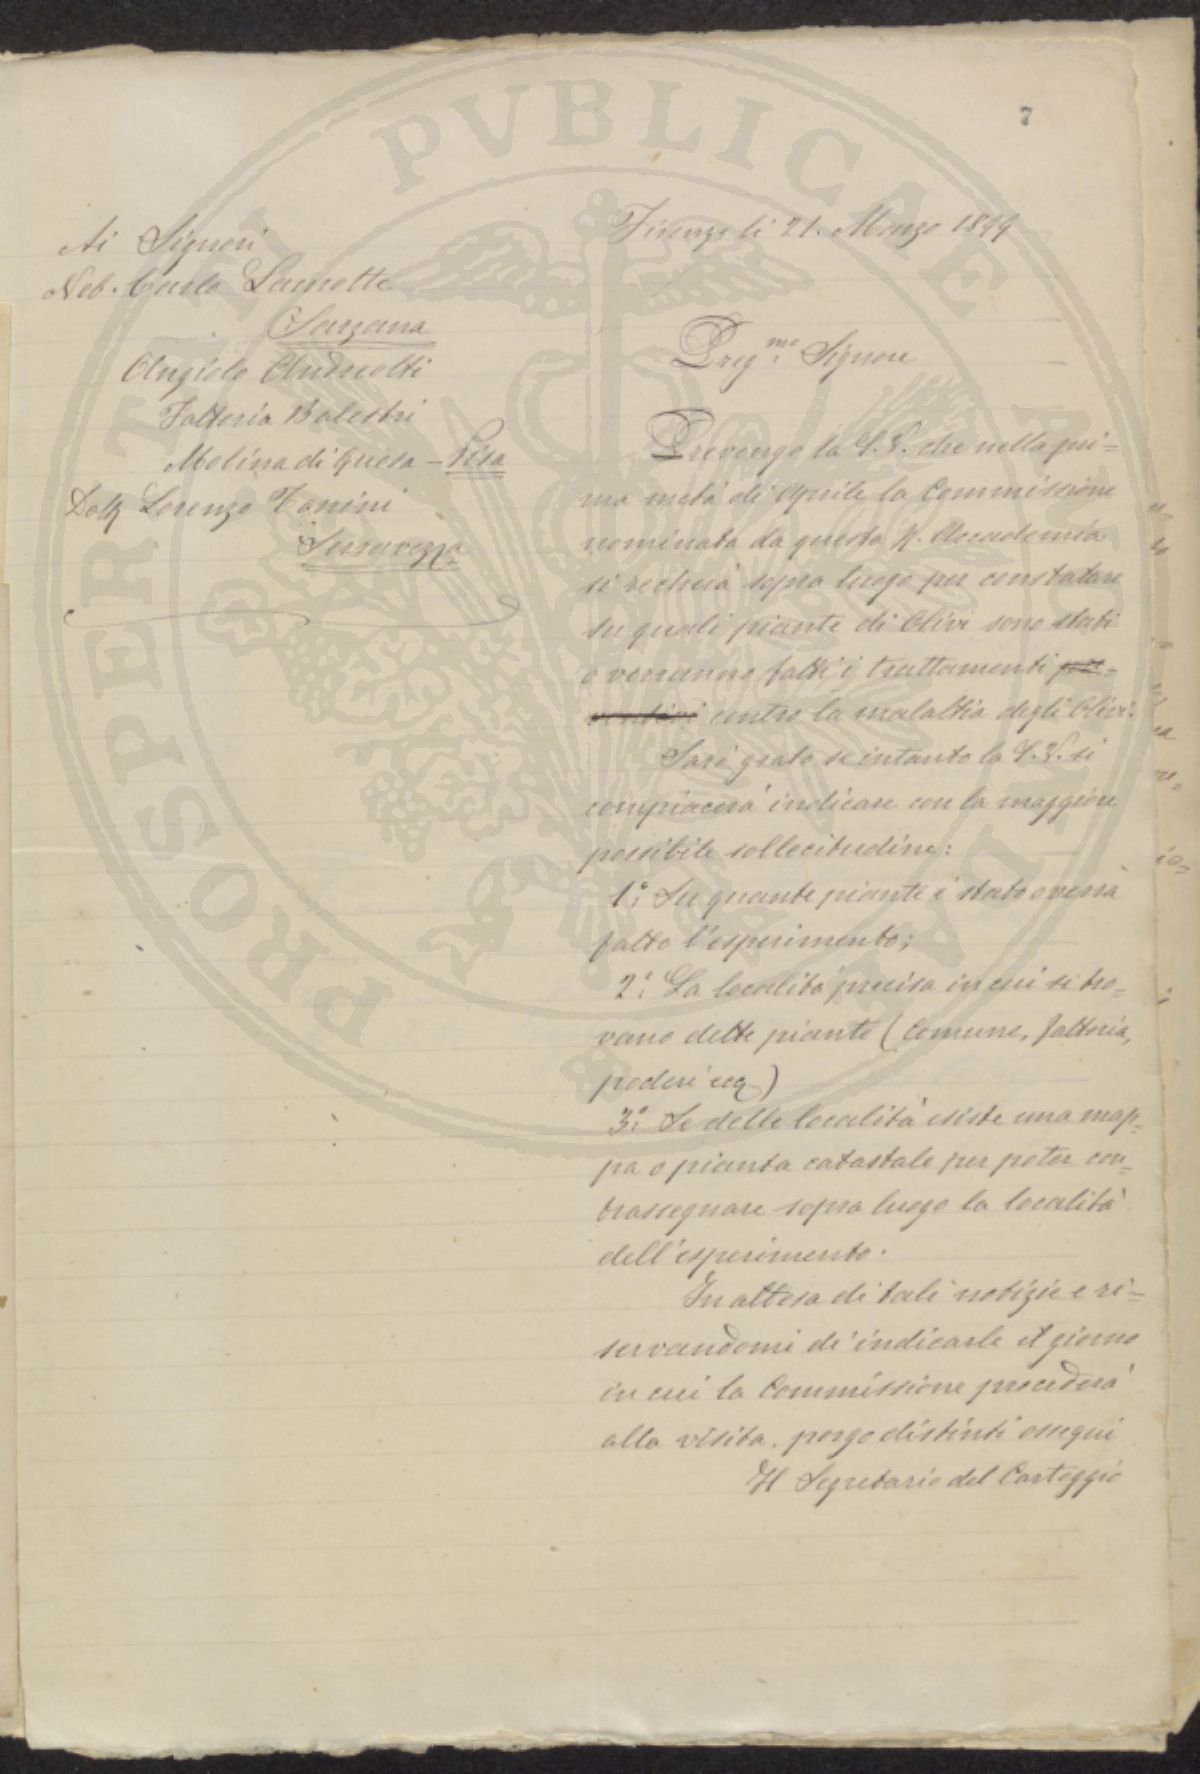 7
Ai Signori
Nob. Carlo Lamotte
Sarzana
Angiolo Andreotti
Fattoria Balestri
Molina di Quosa - Pisa
Dott Lorenzo Tonini
Seravezza
Firenze li 21. Marzo 1899
Preg.mo Signore
Prevengo la S.V. che nella pri=
ma metà di Aprile la Commissione
nominata da questa R. Accademia
si recherà sopra luogo per constatare
su quali piante di Olivi sono stati
o verranno fatti i trattamenti pre=
ventivi contro la malattia degli Olivi.
Sarò grato se intanto la S.V. si
compiacerà indicare con la maggiore
possibile sollecitudine:
1.° Su quante piante è stato o verrà
fatto l'esperimento;
2.° La località precisa in cui si tro=
vano dette piante (Comune, fattoria,
poderi ecc)
3.° Se delle località esiste una map=
pa o pianta catastale per poter con=
trassegnare sopra luogo la località
dell'esperimento.
In attesa di tali notizie e ri=
servandomi di indicarle il giorno
in cui la Commissione procederà
alla visita, porgo distinti ossequi
Il Segretario del Carteggio
PROSPERITATI PVBLICAE AVGENDAE